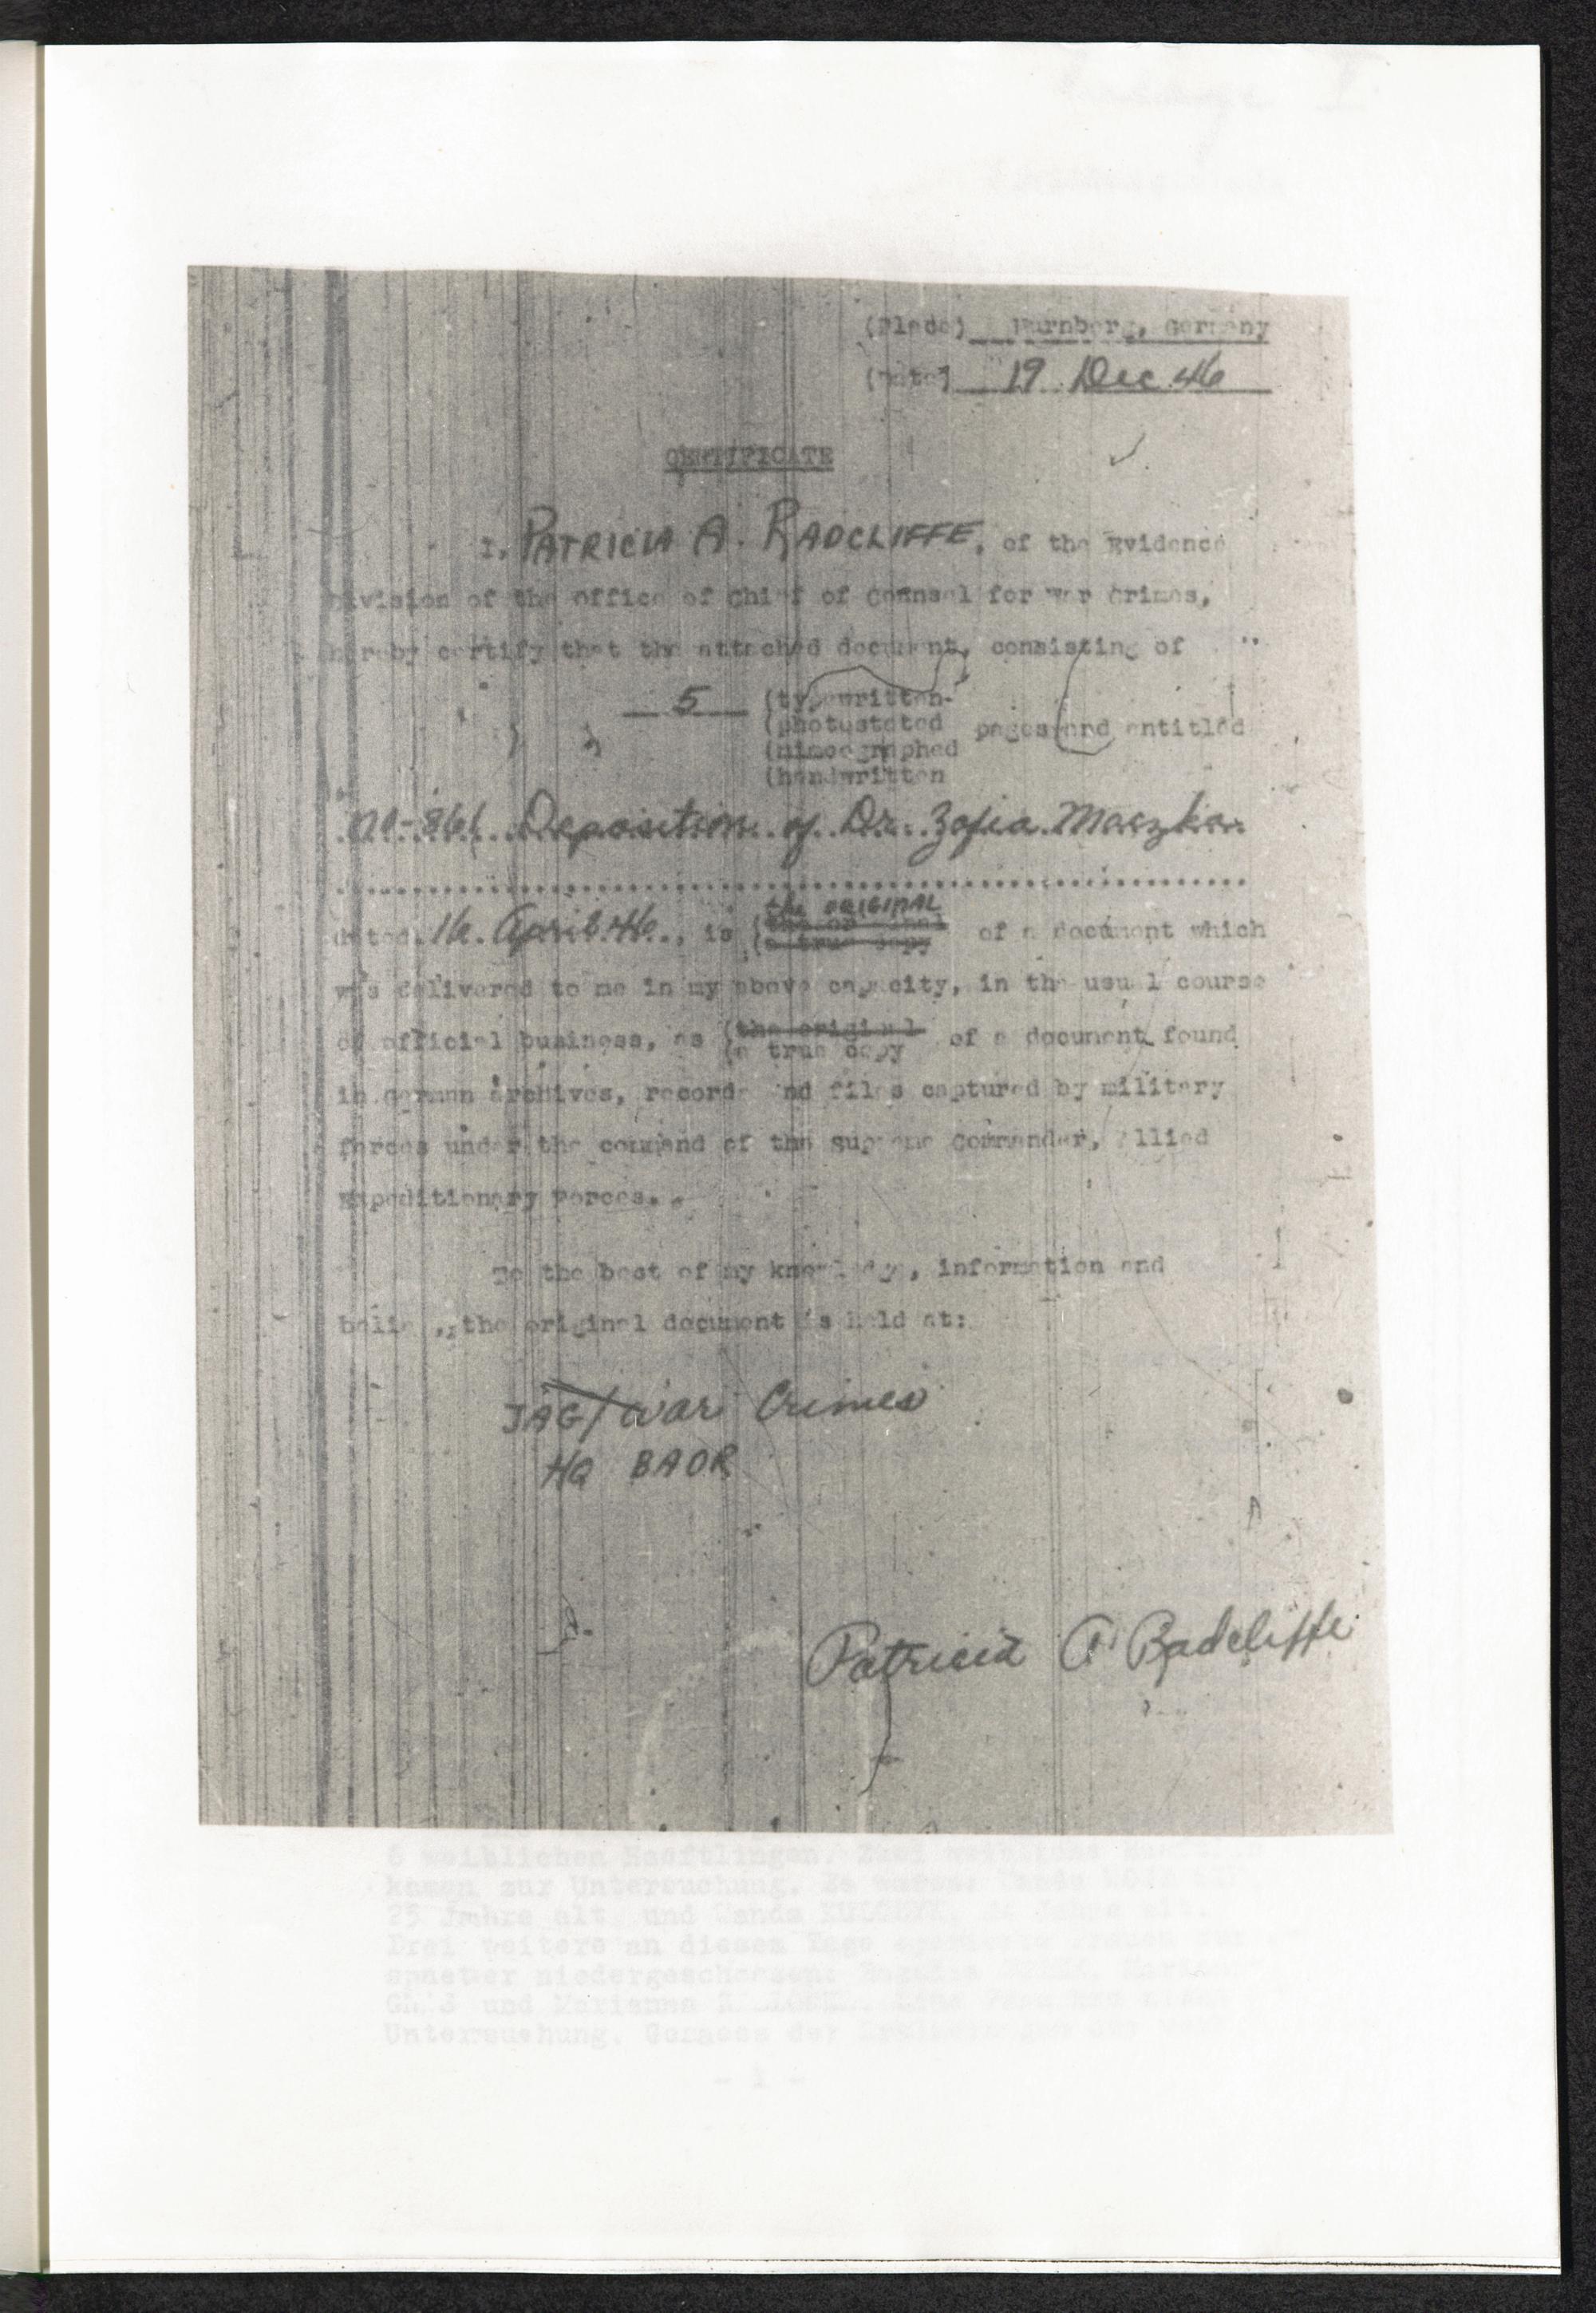 (Place) Nurnberg, Germany
(Date) 19 Dec 46
CERTIFICATE
I, PATRICIA A. RADCLIFFE, of the Evidence
Division of the Office of Chief of Counsel for War Crimes,
hereby certify that the attached document, consisting of
5 (typewritten
(photostated pages and entitled
(mimeographed
(handwritten
NO-861 Deposition of Dr. Zofia Maczka
dated 16 April 46, is the ORIGINAL
(the original
(a true copy of a document which
was delivered to me in my above capacity, in the usual course
of official business, as (the original of a document found
(a true copy
in German archives, records and files captured by military
forces under the command of the Supreme Commander, Allied
Expeditionary Forces.
To the best of my knowledge, information and
belief, the original document is held at:
JAG/War Crimes
HQ BAOR
Patricia A Radcliffe
6 weiblichen Haeftlingen. Zwei
kamen zur Untersuchung. Es waren Wanda
25 Jahre alt und Wanda
Drei weitere an diesem Tage operierte Frauen wurden
spaeter niedergeschossen:
und Marianna
Untersuchung. Gemaess der
- 1 -